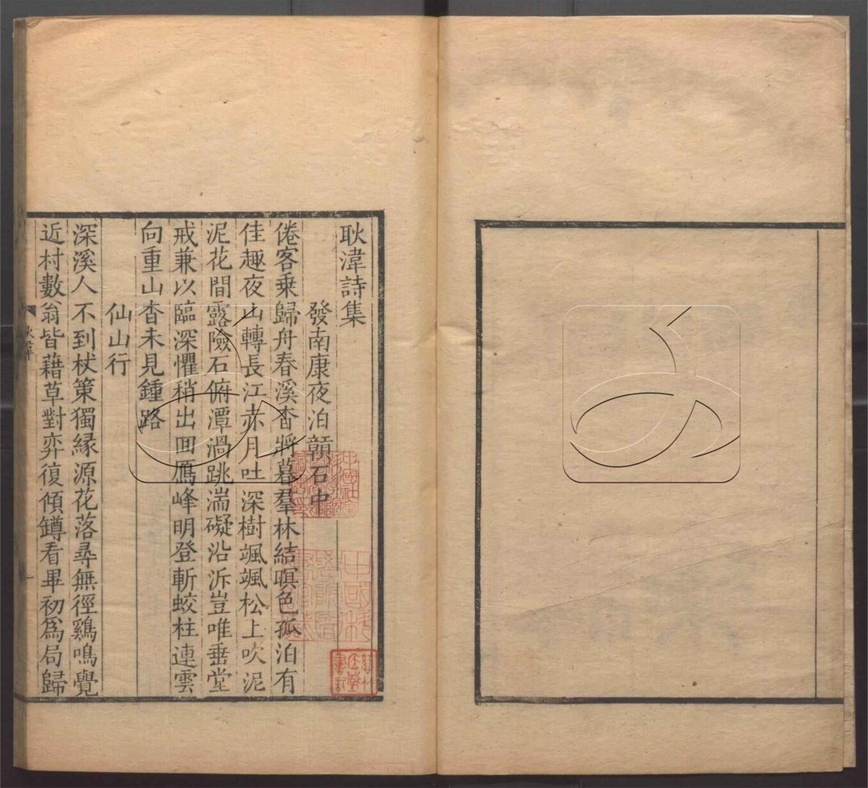 耿湋詩集
發南康夜泊贑石中
倦客乗歸舟春溪杳將暮羣林結暝色孤泊有
佳趣夜山轉長江赤月吐深樹颯颯松上吹泥
泥花間露險石俯潭渦跳湍礙沿泝豈唯垂堂
戒兼以臨深懼稍出回鴈峰明登斬蛟柱連雲
向重山杳未見鍾路
仙山行
深溪人不到杖策獨縁源花落尋無徑鷄鳴覺
近村數翁皆藉草對弈復傾罇看畢初爲局歸